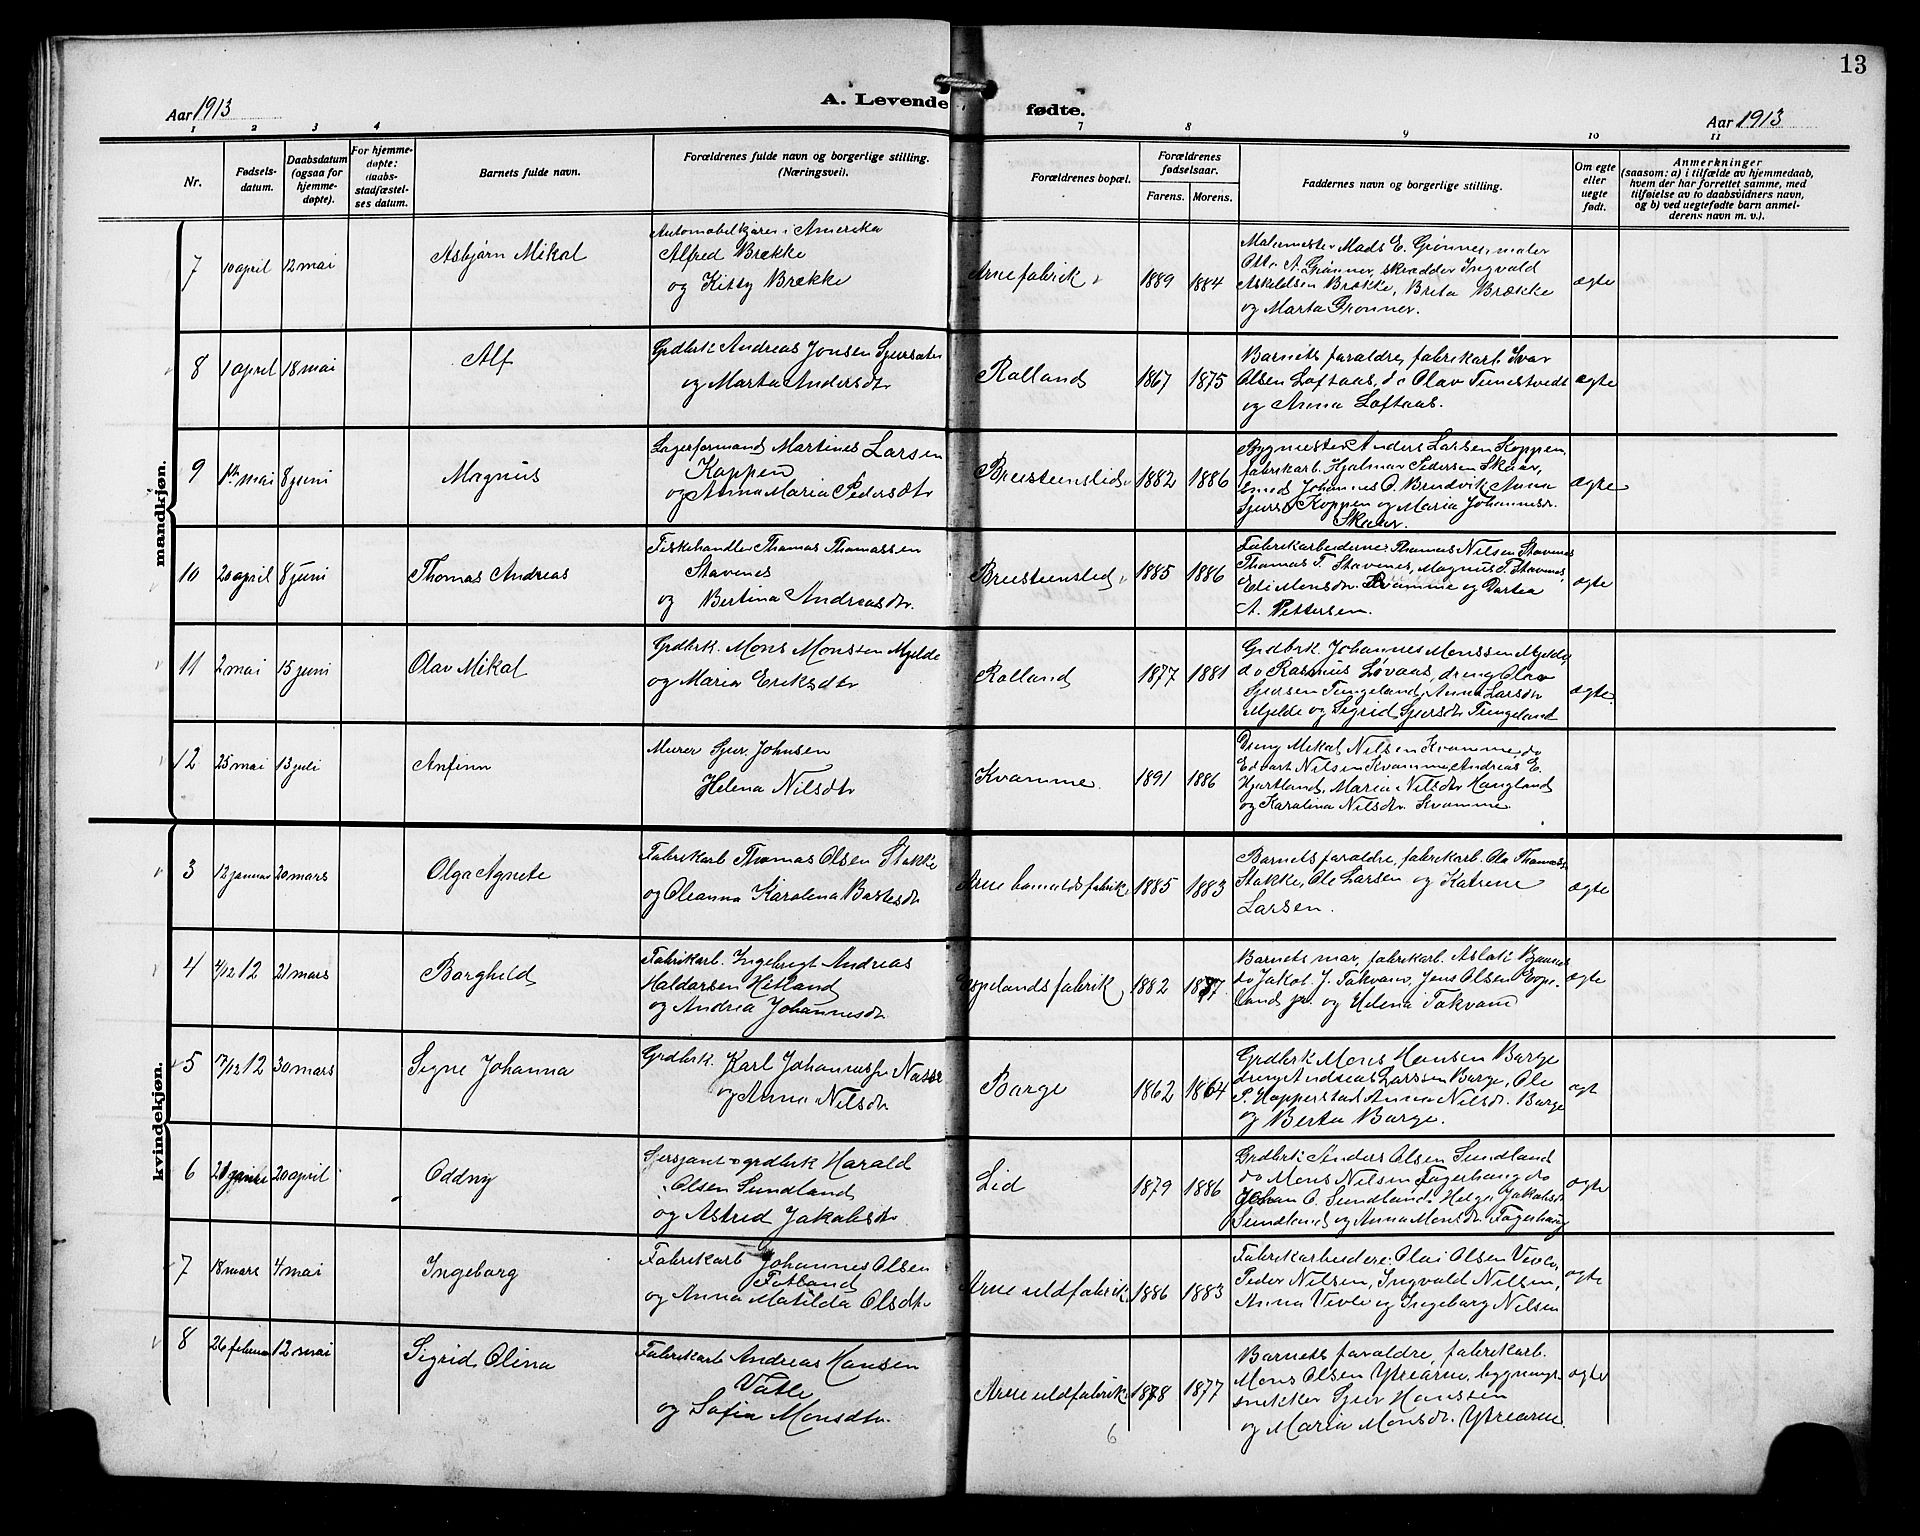 13
A. Levende fødte.
Aar 1913
Aar 1913
1 2 3 4 7 8 9 10 11
Nr.
Fødsels-
datum.
Daabsdatum
(ogsaa for
hjemme-
døpte).
For hjemme-
døpte:
daabs-
stadfæstel-
ses datum.
Barnets fulde navn.
Forældrenes fulde navn og borgerlige stilling.
(Næringsvei).
Forældrenes bopæl.
Forældrenes
fødselsaar.
Farens. Morens.
Faddernes navn og borgerlige stilling.
Om egte
eller
uegte
født.
Anmerkninger
(saasom: a) i tilfælde av hjemmedaab,
hvem der har forrettet samme, med
tilføielse av to daabsvidners navn,
og b) ved uegtefødte barn anmel-
derens navn m. v.).
mandkjøn.
7 10 april 12 mai Asbjørn Mikal
Automobilkjører i Amerika
Alfred Brække
og Kitty Brække
Arne fabrik 1889 1884
Malermester Mads E. Grønner, maler
Otto A. Grønner, skrædder Ingvald
Askildsen Brække, Brita Brække
og Marta Grønner.
ægte
8 1 april 18 mai Alf
Grdbrk Andreas Jonsen
og Marta Andersdtr
Rolland 1867 1875
Barnets forældre, fabrikarb. Ivar
Olsen Loftaas, do Olav Tunestvedt
og Anna Loftaas.
ægte
9 mai 8 juni Magnus
Lagerformand Martines Larsen
Koppen
og Anna Maria Pedersdtr
Breistenslid 1882 1886
Bygmester Anders Larsen Koppen,
fabrikarb. Hjalmar Pedersen Skaar,
smed Johannes O. Brudvik, Anna
Sjursd. Koppen og Maria Johannesdr.
Skaar.
ægte
10 20 april 8 juni Thomas Andreas
Fiskehandler Thomas Thomassen
Stavenes
og Bertina Andreasdtr.
Breistenslid 1885 1886
Fabrikarbeiderne Thomas Nilsen Stavenes
Thomas T. Stavenes, Magnus T. Stavenes,
Eli Monsdtr. Kvamme og Dortea
A. Pettersen.
ægte
11 2 mai 15 juni Olav Mikal
Grdbrk. Mons Monsen Mjelde
og Maria Eriksdtr
Rolland 1877 1881
Grdbrk. Johannes Monssen Mjelde
do Rasmus Løvaas, dreng Olav
Sjursen Tungeland, Anna Larsdtr
Mjelde og Sigrid Sjursdtr Tungeland
ægte
12 25 mai 13 juli Anfinn
Murer Sjur Johnsen
Helena Nilsdtr
Kvamme 1891 1886
Dreng Mikal Nilsen Kvamme, do
Edvart Nilsen Kvamme, Andreas E.
Hjortland, Maria Nilsdtr Haugland
og Karolina Nilsdtr. Kvamme
kvindekjøn.
3 12 januar 20 mars Olga Agnete
Fabrikarb Thomas Olsen Stokke
og Oleanna Karolina
Arne bomuldsfabrik 1885 1883
Barnets forældre, fabrikarb. Ole Thomas
Stokke, Ole Larsen og Katrine
Larsen.
ægte
4 4/12 12 21 mars Borghild
Fabrikarb. Ingebrigt Andreas
Haldorsen Hetland
og Andrea Johannesdtr
Espelands fabrik 1882 1887
Barnets mor, fabrikarb. Aslak
do Jakob J. Takvam, Jens Olsen Espe-
land jr. og Helena Takvam
ægte
5 7/12 12 30 mars Signe Johanna
Grdbrk. Karl Johannesen
og Anna Nilsdtr
Borge 1862 1864
Grdbrk Mons Hansen Borge
dreng Andreas Larssen Borge, Ole
P. Hopperstad, Anna Nilsdr. Borge
og Berta Borge.
ægt
6 20 april Oddny
Sersjant og grdbrk Harald
Olsen Sundland
og Astrid Jakobsdtr
Lid 1879 1886
Grdbrk Anders Olsen Sundland
do Mons Nilsen Fagerhaug do
Johan O. Sundland, Helga Jakobsdr
Sundland og Anna Monsdr. Fagerhaug
ægte
7 18 mars 4 mai Ingeborg
Fabrikarb Johannes Olsen
Fotland
og Anna Matilda Olsdtr
Arne uldfabrik 1886 1883
Fabrikarbeidere Olai Olsen
Peder Nilsen, Ingvald Nilsen,
Anna Vevle og Ingeborg Nilsen
ægte
8 26 februar 12 mai Sigrid Olina
Fabrikarb Andreas Hansen
Vatle
og Sofia Monsdtr.
Arne uldfabrik 1878 1877
Barnets forældre, fabrikarb.
Mons Olsen Ytrearne, bygnings-
snekker Sjur Hanssen
og Maria Monsdr. Ytrearne.
ægte
6